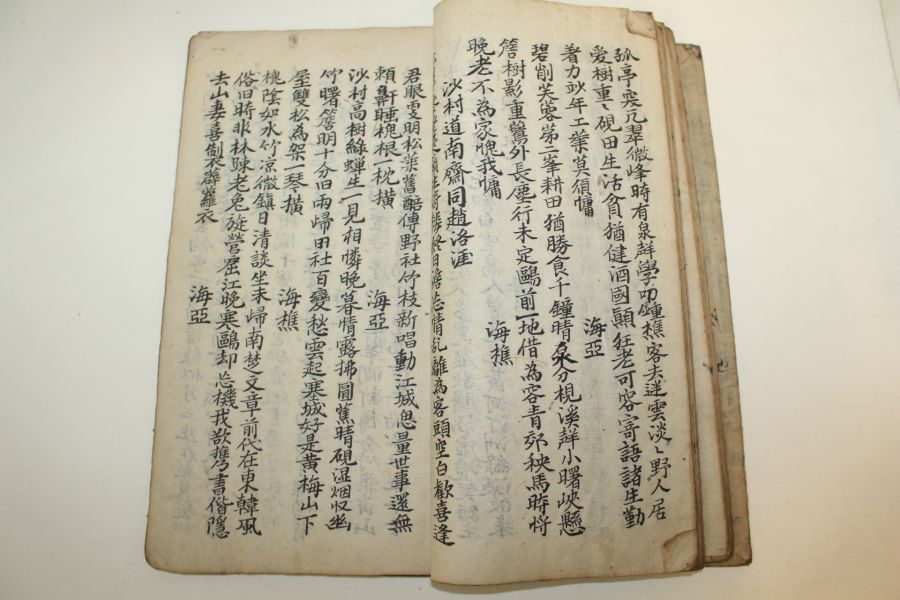 孤亭要几翠微峰時有泉聲學叩鍾樵客去迷雲淡〻野人居
愛樹重〻硯田生活貧猶健酒國顚狂老可容寄語諸生勤
着力玅年工業莫須慵 海亞
碧削芙蓉第二峯耕田猶勝食千鐘晴泉分梘溪聲小曙峽懸
簷樹影重鶯外長堙行未定鷗前一地借為容青郊秧馬時將
晚老不為家愧我慵 海樵
沙村道南齋同趙洛涯
終日澹忘情乱離為客頭空白歡喜逢
君眼更明松葉舊醅傳野社竹枝新唱動江城思量世事還無
賴鼾睡槐根一枕橫 海亞
沙村高樹綠蟬生一見相憐晚暮情露拂圓蕉晴硯湿烟收幽
竹曙簷明十分旧雨歸田社百變愁雲起塞城好是黃梅山下
屋雙松為架一琴橫 海樵
槐陰如水竹凉微鎮日清談坐未歸南楚文章前代在東韓風
俗旧時非林踈老兎旋營窟江晚寒鷗却忘機我欲携書偕隱
去山妻喜製薜蘿衣 海亞